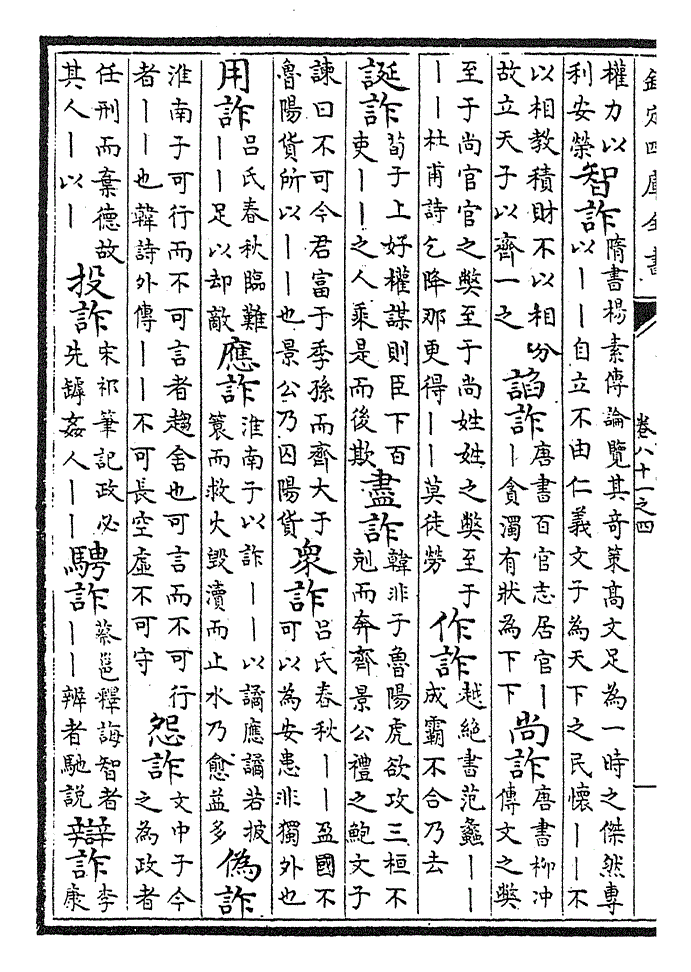 欽定四庫全書
卷八十一之四
一
權力以
利安榮
智詐
隋書楊素傳論覽其竒策髙文足為一時之傑然專
以丨丨自立不由仁義文子為天下之民懷丨丨不
以相教積財不以相分
故立天子以齊一之
諂詐
唐書百官志居官丨
丨貪濁有狀為下下
尚詐
唐書柳冲
傳文之獘
至于尚官官之獘至于尚姓姓之獘至于
丨丨杜甫詩乞降那更得丨丨莫徒勞
作詐
越絕書范蠡丨丨
成霸不合乃去
誕詐
荀子上好權謀則臣下百
吏丨丨之人乘是而後欺
盡詐
韓非子魯陽虎欲攻三桓不
剋而奔齊景公禮之鮑文子
諫曰不可今君富于季孫而齊大于
魯陽貨所以丨丨也景公乃囚陽貨
衆詐
吕氏春秋丨丨盈國不
可以為安患非獨外也
用詐
吕氏春秋臨難
丨丨足以却敵
應詐
淮南子以詐丨丨以譎應譎若披
簑而救火毁瀆而止水乃愈益多
偽詐
淮南子可行而不可言者趨舍也可言而不可行
者丨丨也韓詩外傳丨丨不可長空虛不可守
怨詐
文中子今
之為政者
任刑而棄德故
其人丨以丨
投詐
宋祁筆記政必
先罅姦人丨丨
騁詐
蔡邕釋誨智者
丨丨辨者馳說
辯詐
李
康